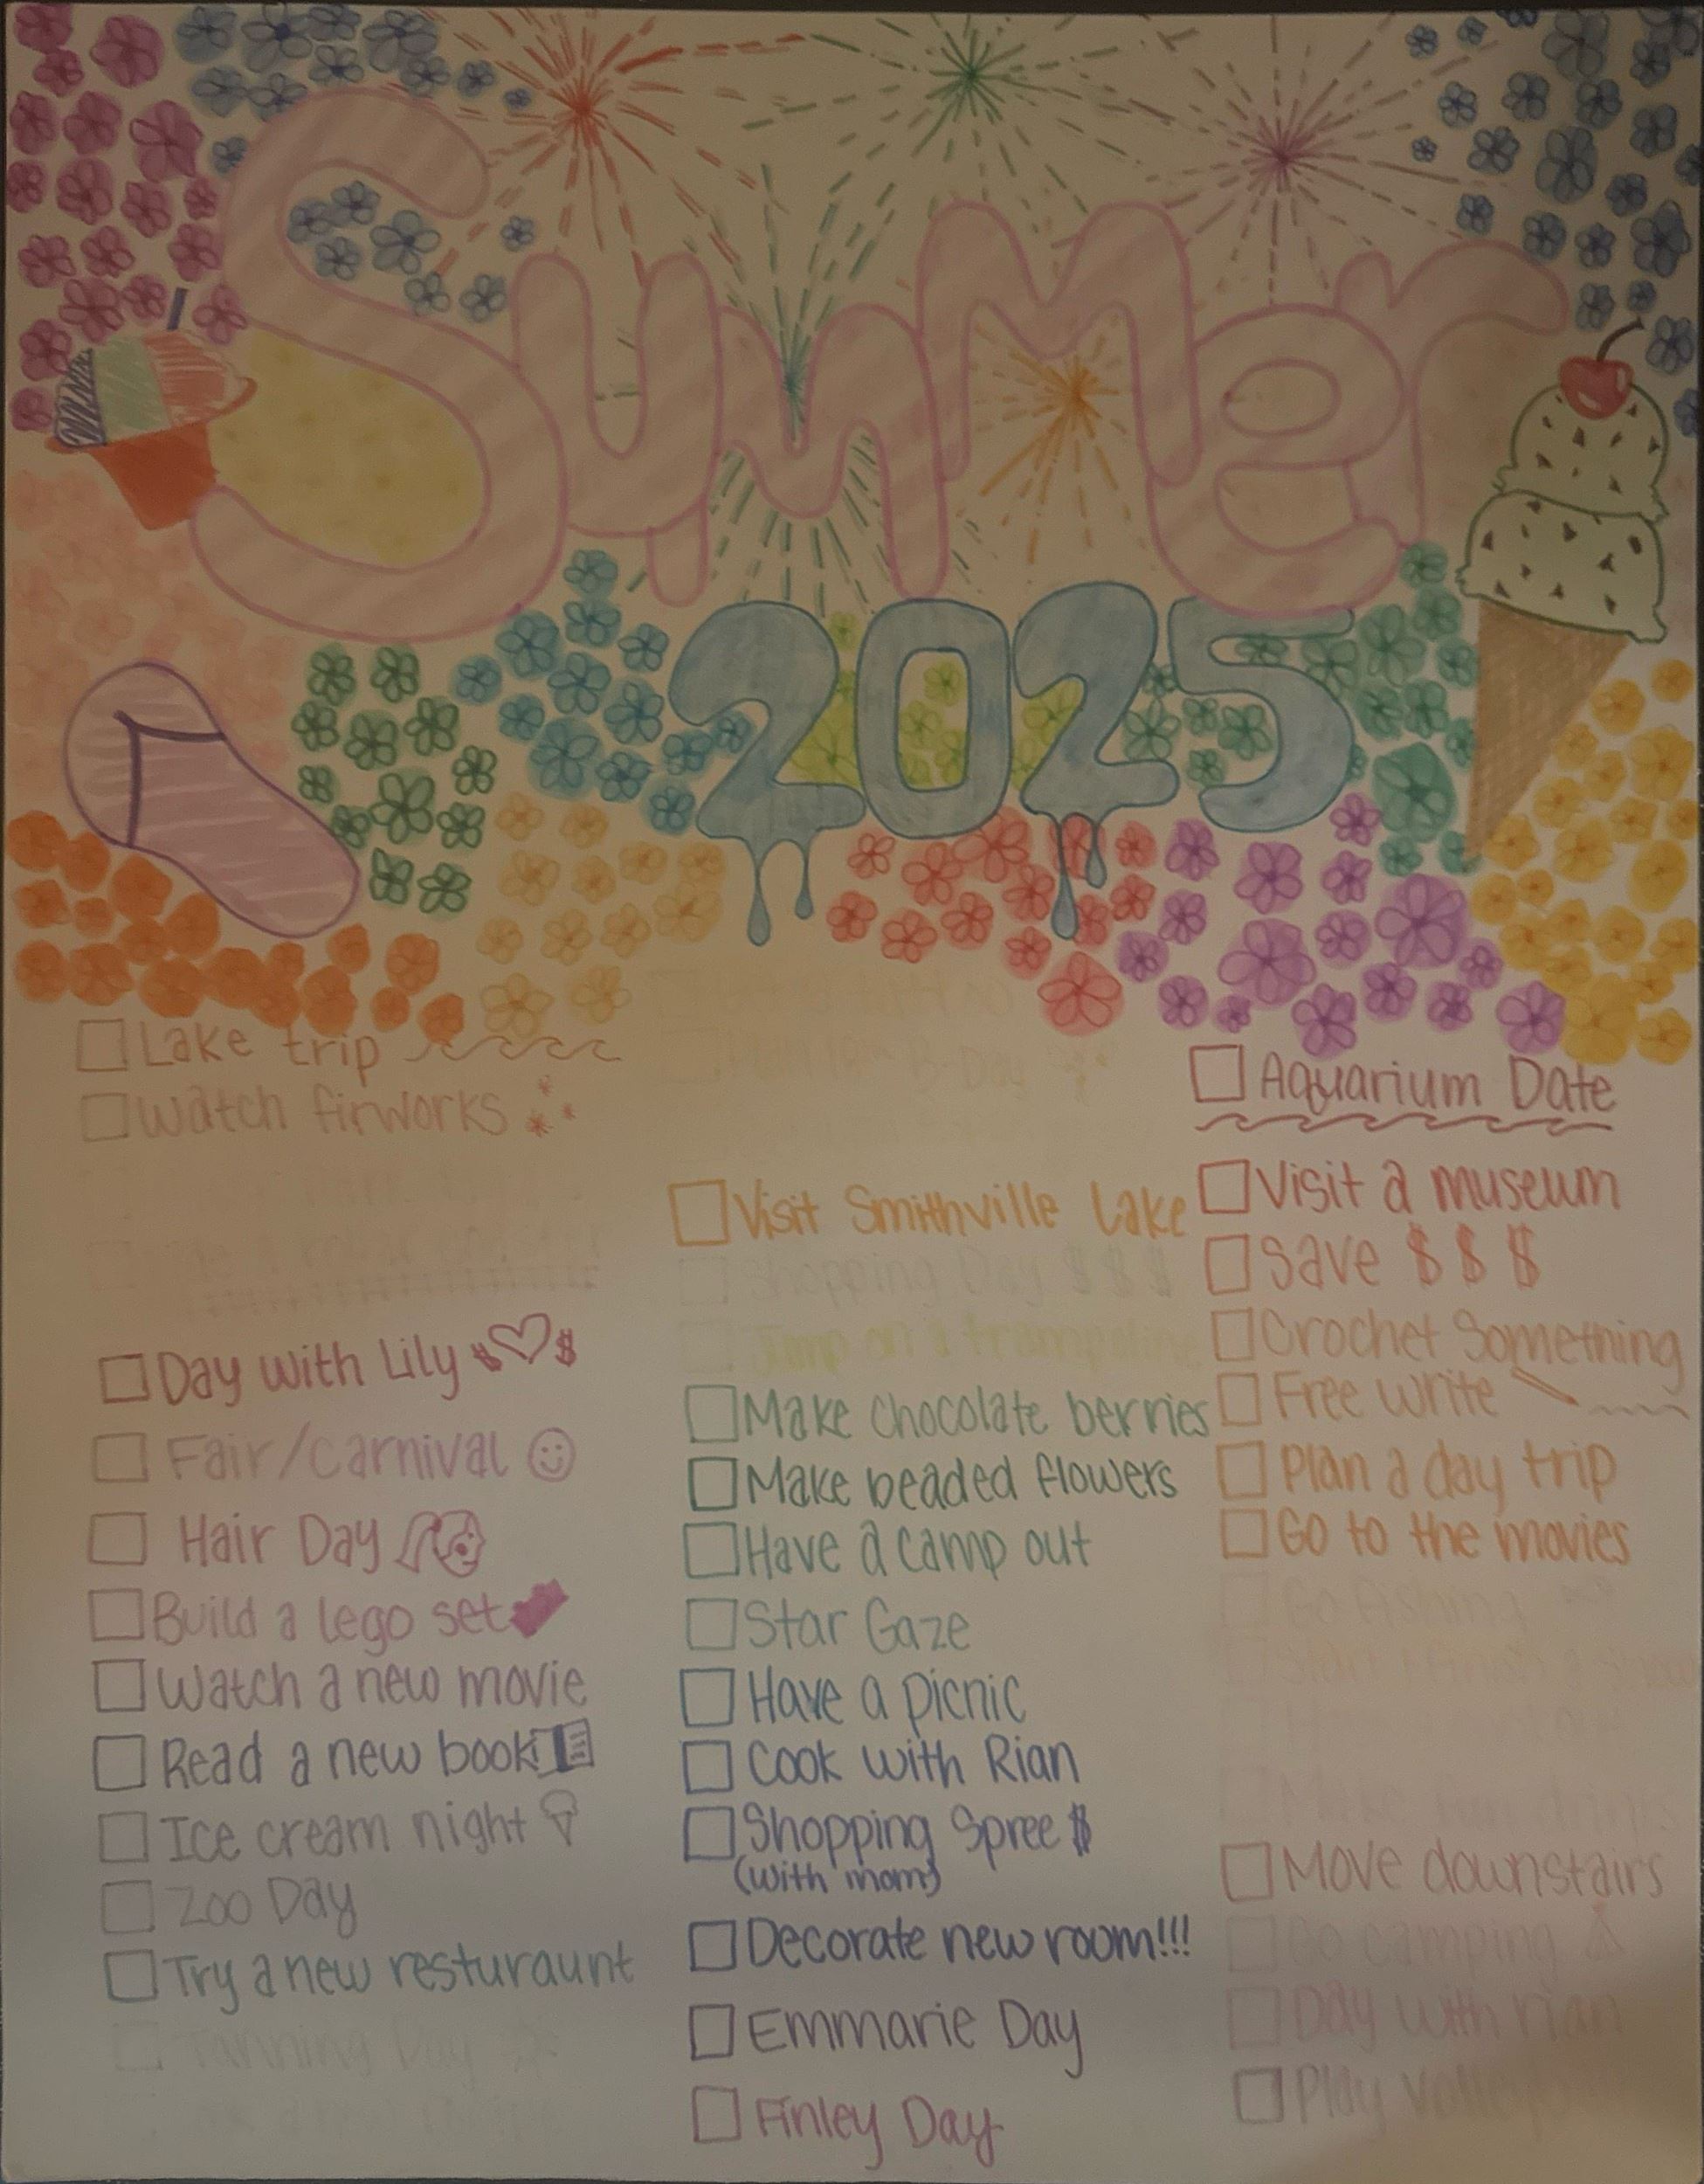 Summer
2025
Lake trip
Watch firworks
Day with Lily $ $
Fair/Carnival
Hair Day
Build a lego set
Watch a new movie
Read a new book
Ice cream night
Zoo Day
Try a new resturaunt
Tanning Day
Visit Smithville Lake
Shopping Day $ $ $
Jump on a trampoline
Make chocolate berries
Make beaded flowers
Have a camp out
Star Gaze
Have a picnic
Cook with Rian
Shopping Spree $
(with mom)
Decorate new room!!!
Emmarie Day
Finley Day
Aquarium Date
Visit a museum
Save $ $ $
Crochet Something
Free write
Plan a day trip
Go to the movies
Go fishing
Move downstairs
Go camping
Day with rian
Play volleyball